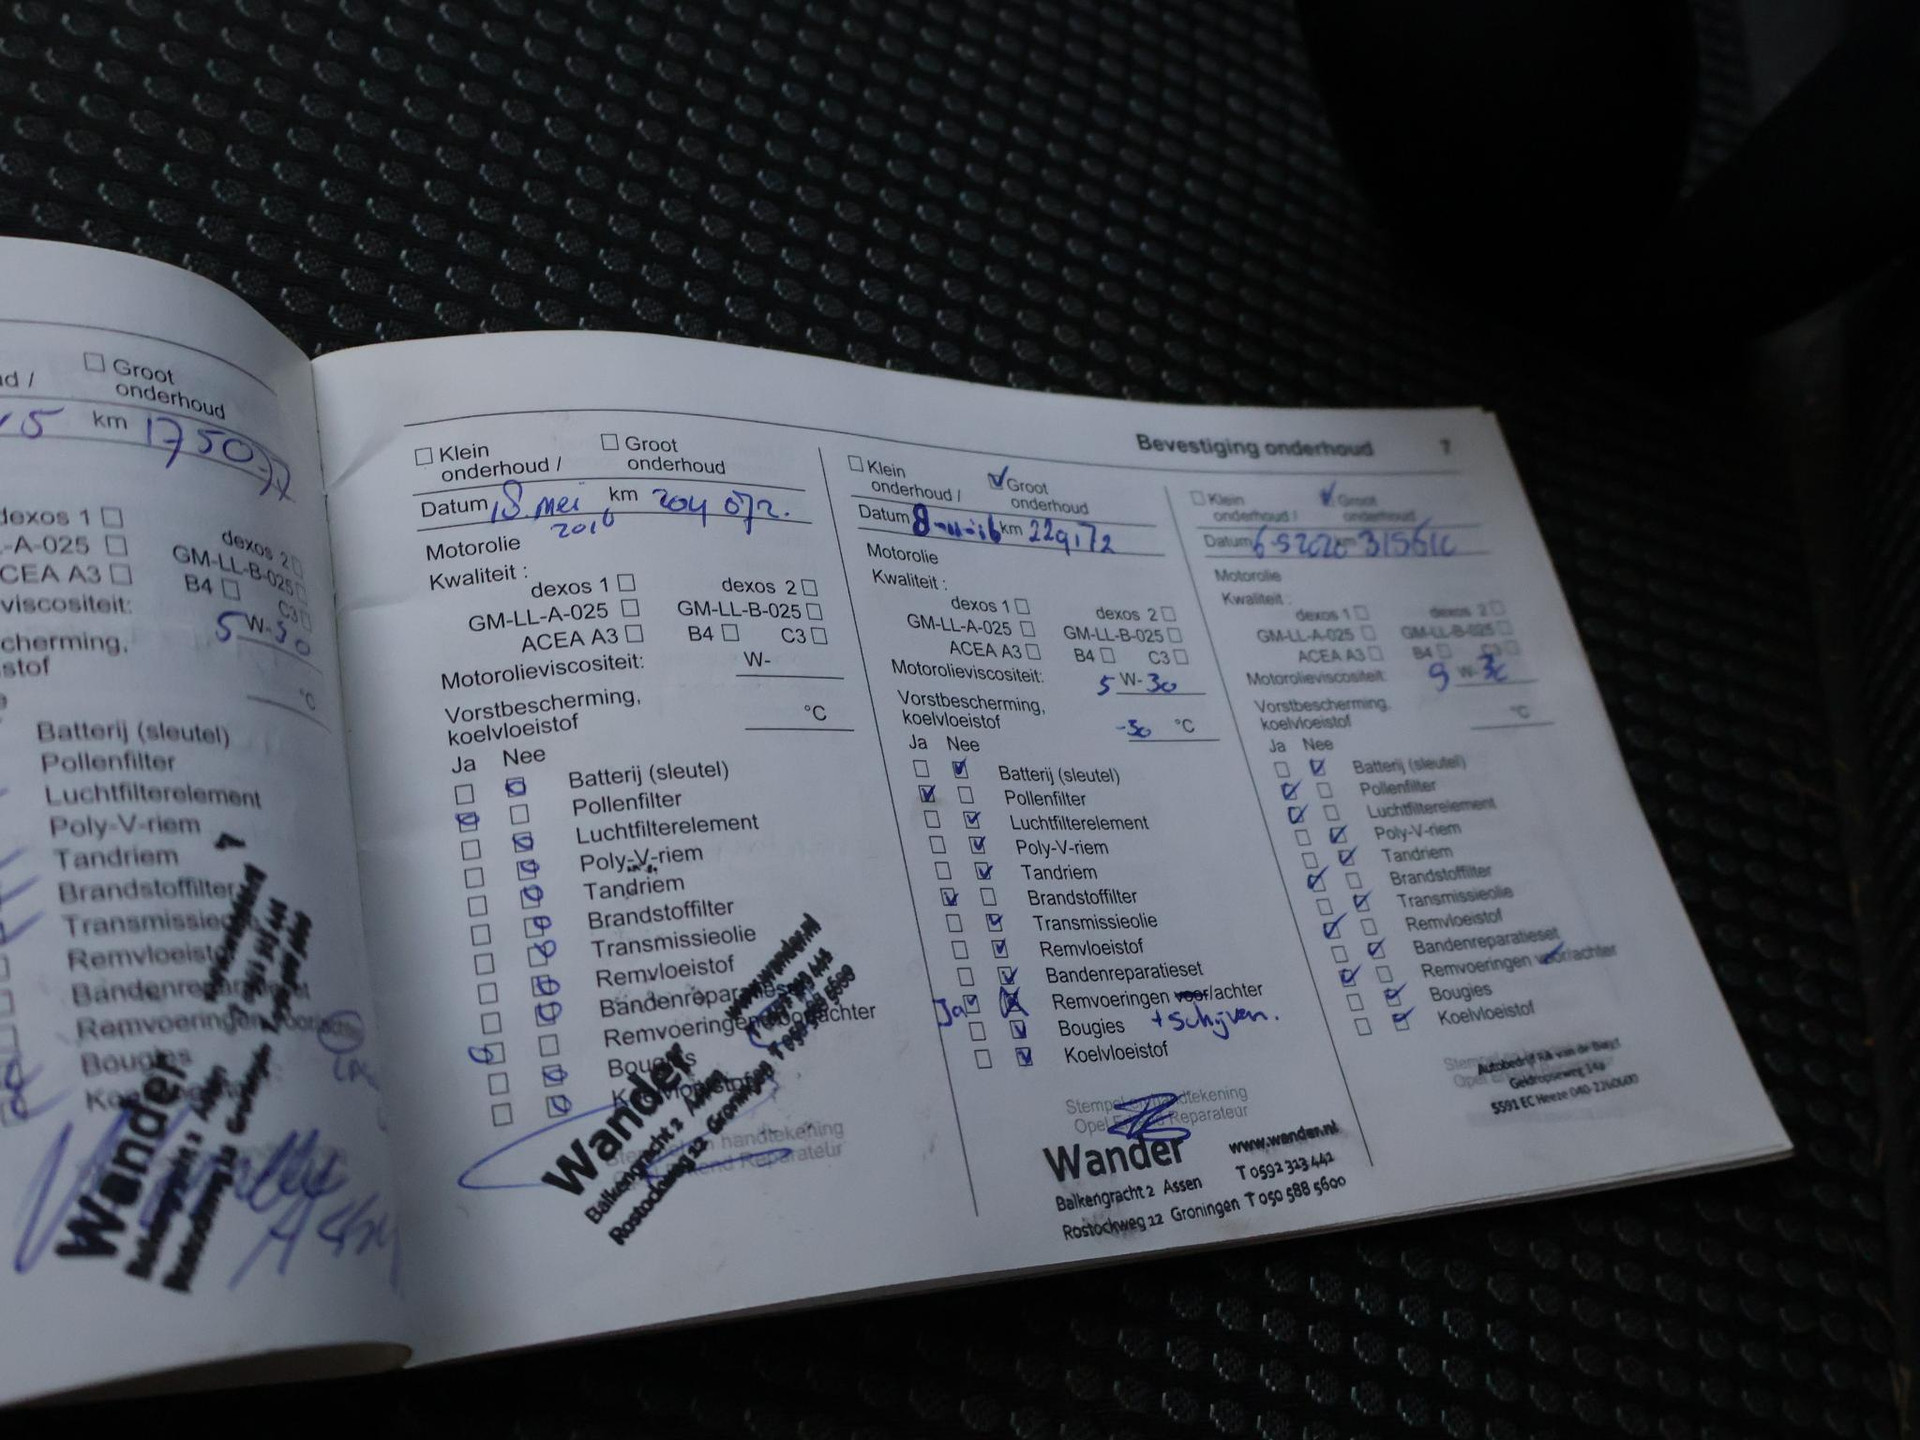 Groot
onderhoud
km 175077
dexos 1
dexos 2
GM-LL-B-025
B4
C3
5 W-30
°C
Batterij (sleutel)
Pollenfilter
Luchtfilterelement
Poly-V-riem
Tandriem
Brandstoffilter
Remvloeistof
Bougies
Wander
Bevestiging onderhoud 7
Klein
onderhoud /
Groot
onderhoud
Datum 18 mei km 204 072.
2016
Motorolie
Kwaliteit :
dexos 1 dexos 2
GM-LL-A-025 GM-LL-B-025
ACEA A3 B4 C3
Motorolieviscositeit: W-
Vorstbescherming,
koelvloeistof °C
Ja Nee
Batterij (sleutel)
Pollenfilter
Luchtfilterelement
Poly-V-riem
Tandriem
Brandstoffilter
Transmissieolie
Remvloeistof
Bandenreparatieset
Remvoeringen voor/achter
Bougies
Koelvloeistof
Wander
Balkengracht 2 Assen
Rostockweg 12 Groningen T 050 588 5600
www.wander.nl
Klein
onderhoud /
Groot
onderhoud
Datum 8-11-16 km 229172
Motorolie
Kwaliteit :
dexos 1 dexos 2
GM-LL-A-025 GM-LL-B-025
ACEA A3 B4 C3
Motorolieviscositeit: 5 W-30
Vorstbescherming,
koelvloeistof -30 °C
Ja Nee
Batterij (sleutel)
Pollenfilter
Luchtfilterelement
Poly-V-riem
Tandriem
Brandstoffilter
Transmissieolie
Remvloeistof
Bandenreparatieset
Ja Remvoeringen voor/achter
Bougies + schijven.
Koelvloeistof
Stempel en handtekening
Opel Erkend Reparateur
Wander www.wander.nl
Balkengracht 2 Assen T 0592 313 441
Rostockweg 12 Groningen T 050 588 5600
Klein
onderhoud /
Groot
onderhoud
Datum 6-5 2020 km
Motorolie
Kwaliteit :
dexos 1 dexos 2
GM-LL-A-025 GM-LL-B-025
ACEA A3 B4 C3
Motorolieviscositeit: W-30
Vorstbescherming,
koelvloeistof °C
Ja Nee
Batterij (sleutel)
Pollenfilter
Luchtfilterelement
Poly-V-riem
Tandriem
Brandstoffilter
Transmissieolie
Remvloeistof
Bandenreparatieset
Remvoeringen voor/achter
Bougies
Koelvloeistof
Autobedrijf van de
Geldropseweg 14a
5591 EC Heeze 040-2260600